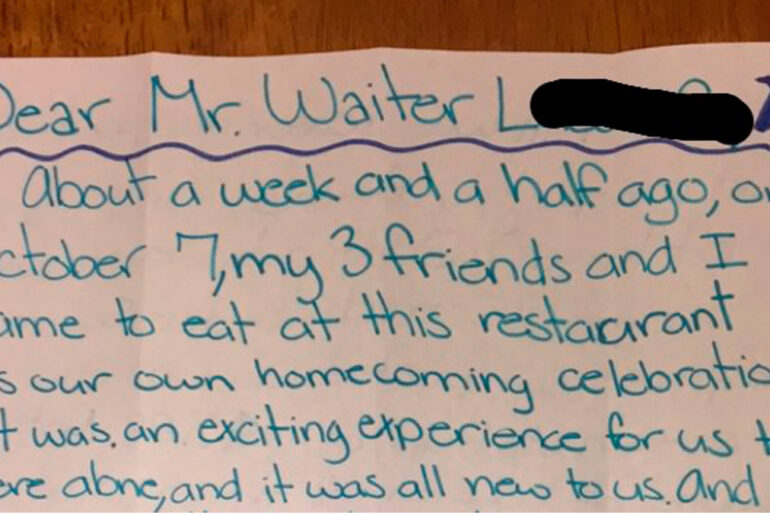 Dear Mr. Waiter L
About a week and a half ago, on
October 7, my 3 friends and I
came to eat at this restaurant
as our own homecoming celebratio
It was an exciting experience for us t
ere alone, and it was all new to us. And